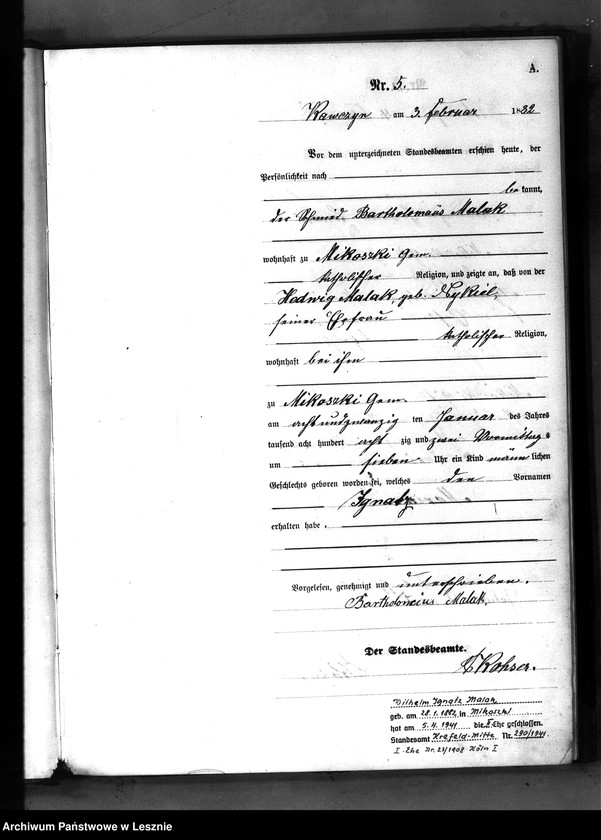 A.
Nr. 5.
Kawczyn am 3. Februar 1882
Vor dem unterzeichneten Standesbeamten erschien heute, der
Persönlichkeit nach
bekannt,
der Schmied Bartholomäus Malak
wohnhaft zu Mikoszki Gem.
katholischer Religion, und zeigte an, daß von der
Hedwig Malak, geb.
seiner Ehefrau
katholischer Religion,
wohnhaft bei ihm
zu Mikoszki Gem.
am acht und zwanzig ten Januar des Jahres
tausend acht hundert acht zig und zwei Vormittags
um sieben Uhr ein Kind männlichen
Geschlechts geboren worden sei, welches den Vornamen
Ignatz
erhalten habe.
Vorgelesen, genehmigt und unterschrieben.
Malak.
Der Standesbeamte.
Wilhelm Ignatz Malak
geb. am 28.1.1882 in Mikoszki
hat am 5.4.1941 die II Ehe geschlossen.
Standesamt Krefeld-Mitte Nr. 290/1941
I. Ehe Nr. 21/1908 Köln I
Archiwum Państwowe w Lesznie